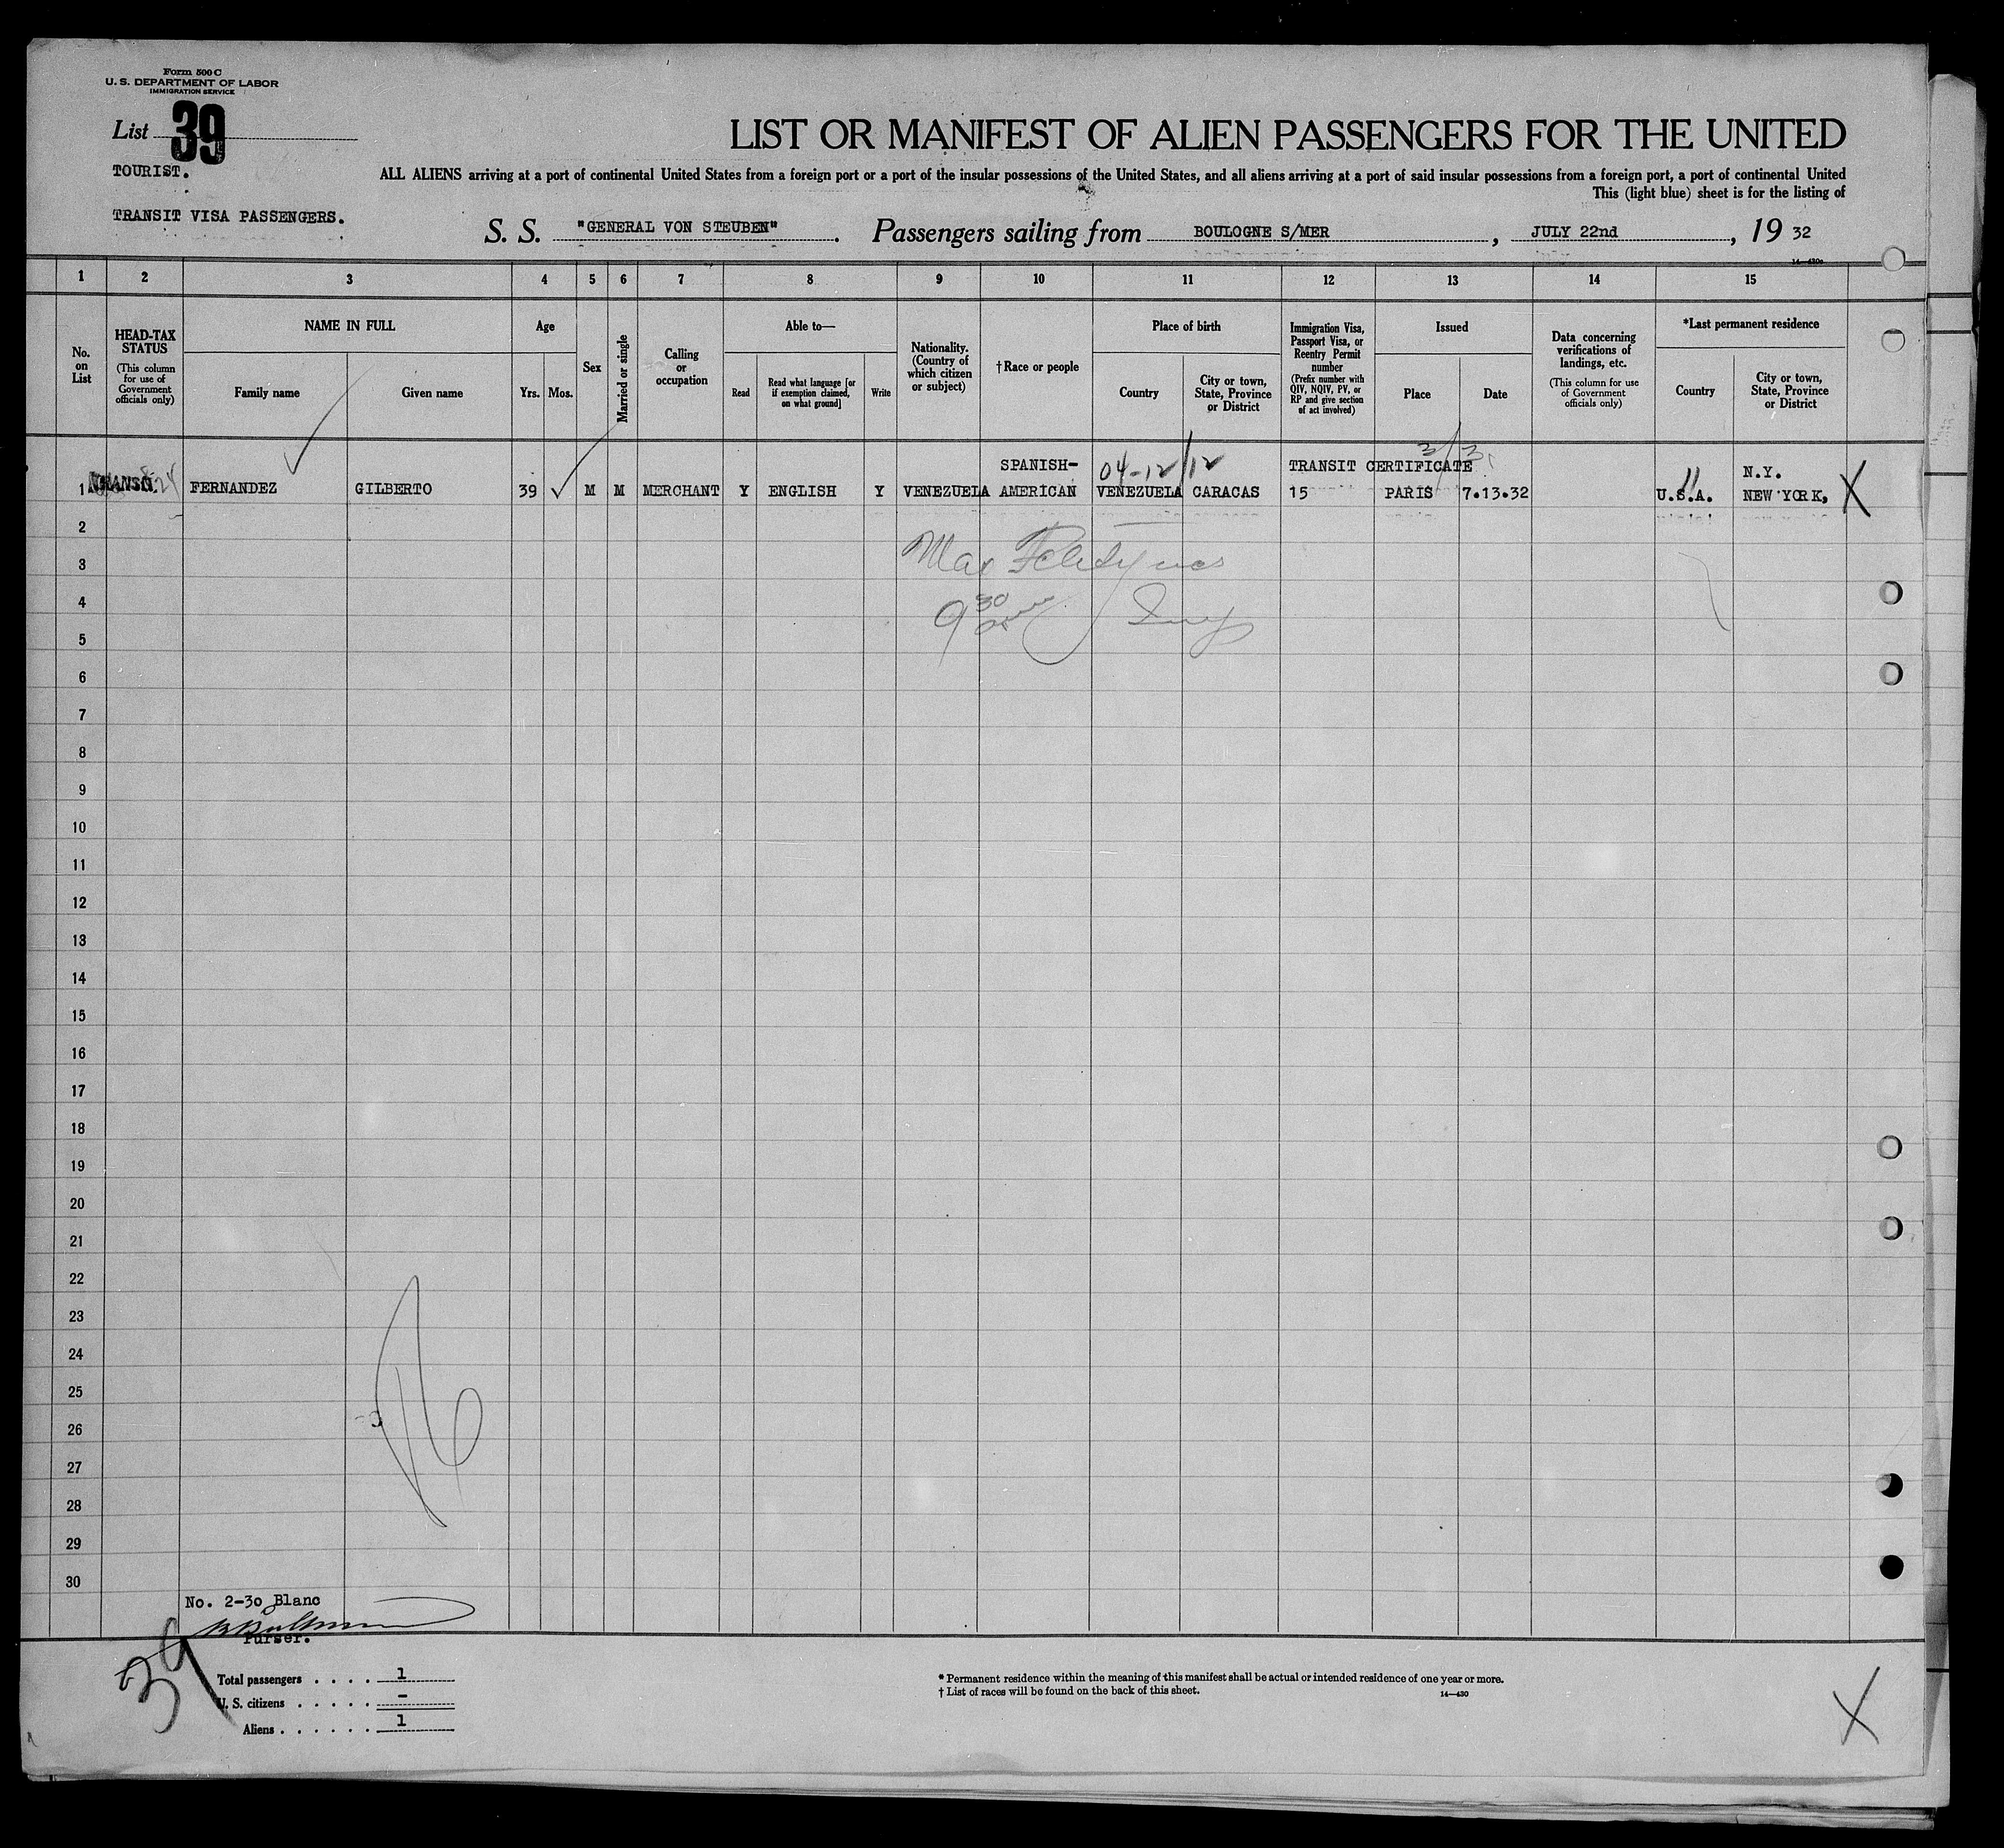 Form 500 C
U. S. DEPARTMENT OF LABOR
IMMIGRATION SERVICE
List 39
TOURIST.
TRANSIT VISA PASSENGERS.
LIST OR MANIFEST OF ALIEN PASSENGERS FOR THE UNITED
ALL ALIENS arriving at a port of continental United States from a foreign port or a port of the insular possessions of the United States, and all aliens arriving at a port of said insular possessions from a foreign port, a port of continental United
This (light blue) sheet is for the listing of
S. S. "GENERAL VON STEUBEN". Passengers sailing from BOULOGNE S/MER, JULY 22nd, 19 32
14—430a
1 2 3 4 5 6 7 8 9 10 11 12 13 14 15
No. on List
HEAD-TAX STATUS
(This column for use of Government officials only)
NAME IN FULL
Family name
Given name
Age
Yrs.
Mos.
Sex
Married or single
Calling or occupation
Able to—
Read
Read what language [or if exemption claimed, on what ground]
Write
Nationality. (Country of which citizen or subject)
† Race or people
Place of birth
Country
City or town, State, Province or District
Immigration Visa, Passport Visa, or Reentry Permit number
(Prefix number with QIV, NQIV, PV, or RP and give section of act involved)
Issued
Place
Date
Data concerning verifications of landings, etc.
(This column for use of Government officials only)
*Last permanent residence
Country
City or town, State, Province or District
SPANISH- 04-12/12 TRANSIT CERTIFICATE N.Y.
1 TRANSIT. FERNANDEZ GILBERTO 39 M M MERCHANT Y ENGLISH Y VENEZUELA AMERICAN VENEZUELA CARACAS 15 PARIS 7.13.32 U.S.A. NEW YORK, X
2
3 Max
4 9 30
5
6
7
8
9
10
11
12
13
14
15
16
17
18
19
20
21
22
23
24
25
26
27
28
29
30
No. 2-30 Blanc
Purser.
39
Total passengers . . . . 1
U. S. citizens . . . . . -
Aliens . . . . . . 1
* Permanent residence within the meaning of this manifest shall be actual or intended residence of one year or more.
† List of races will be found on the back of this sheet.
14—430
X